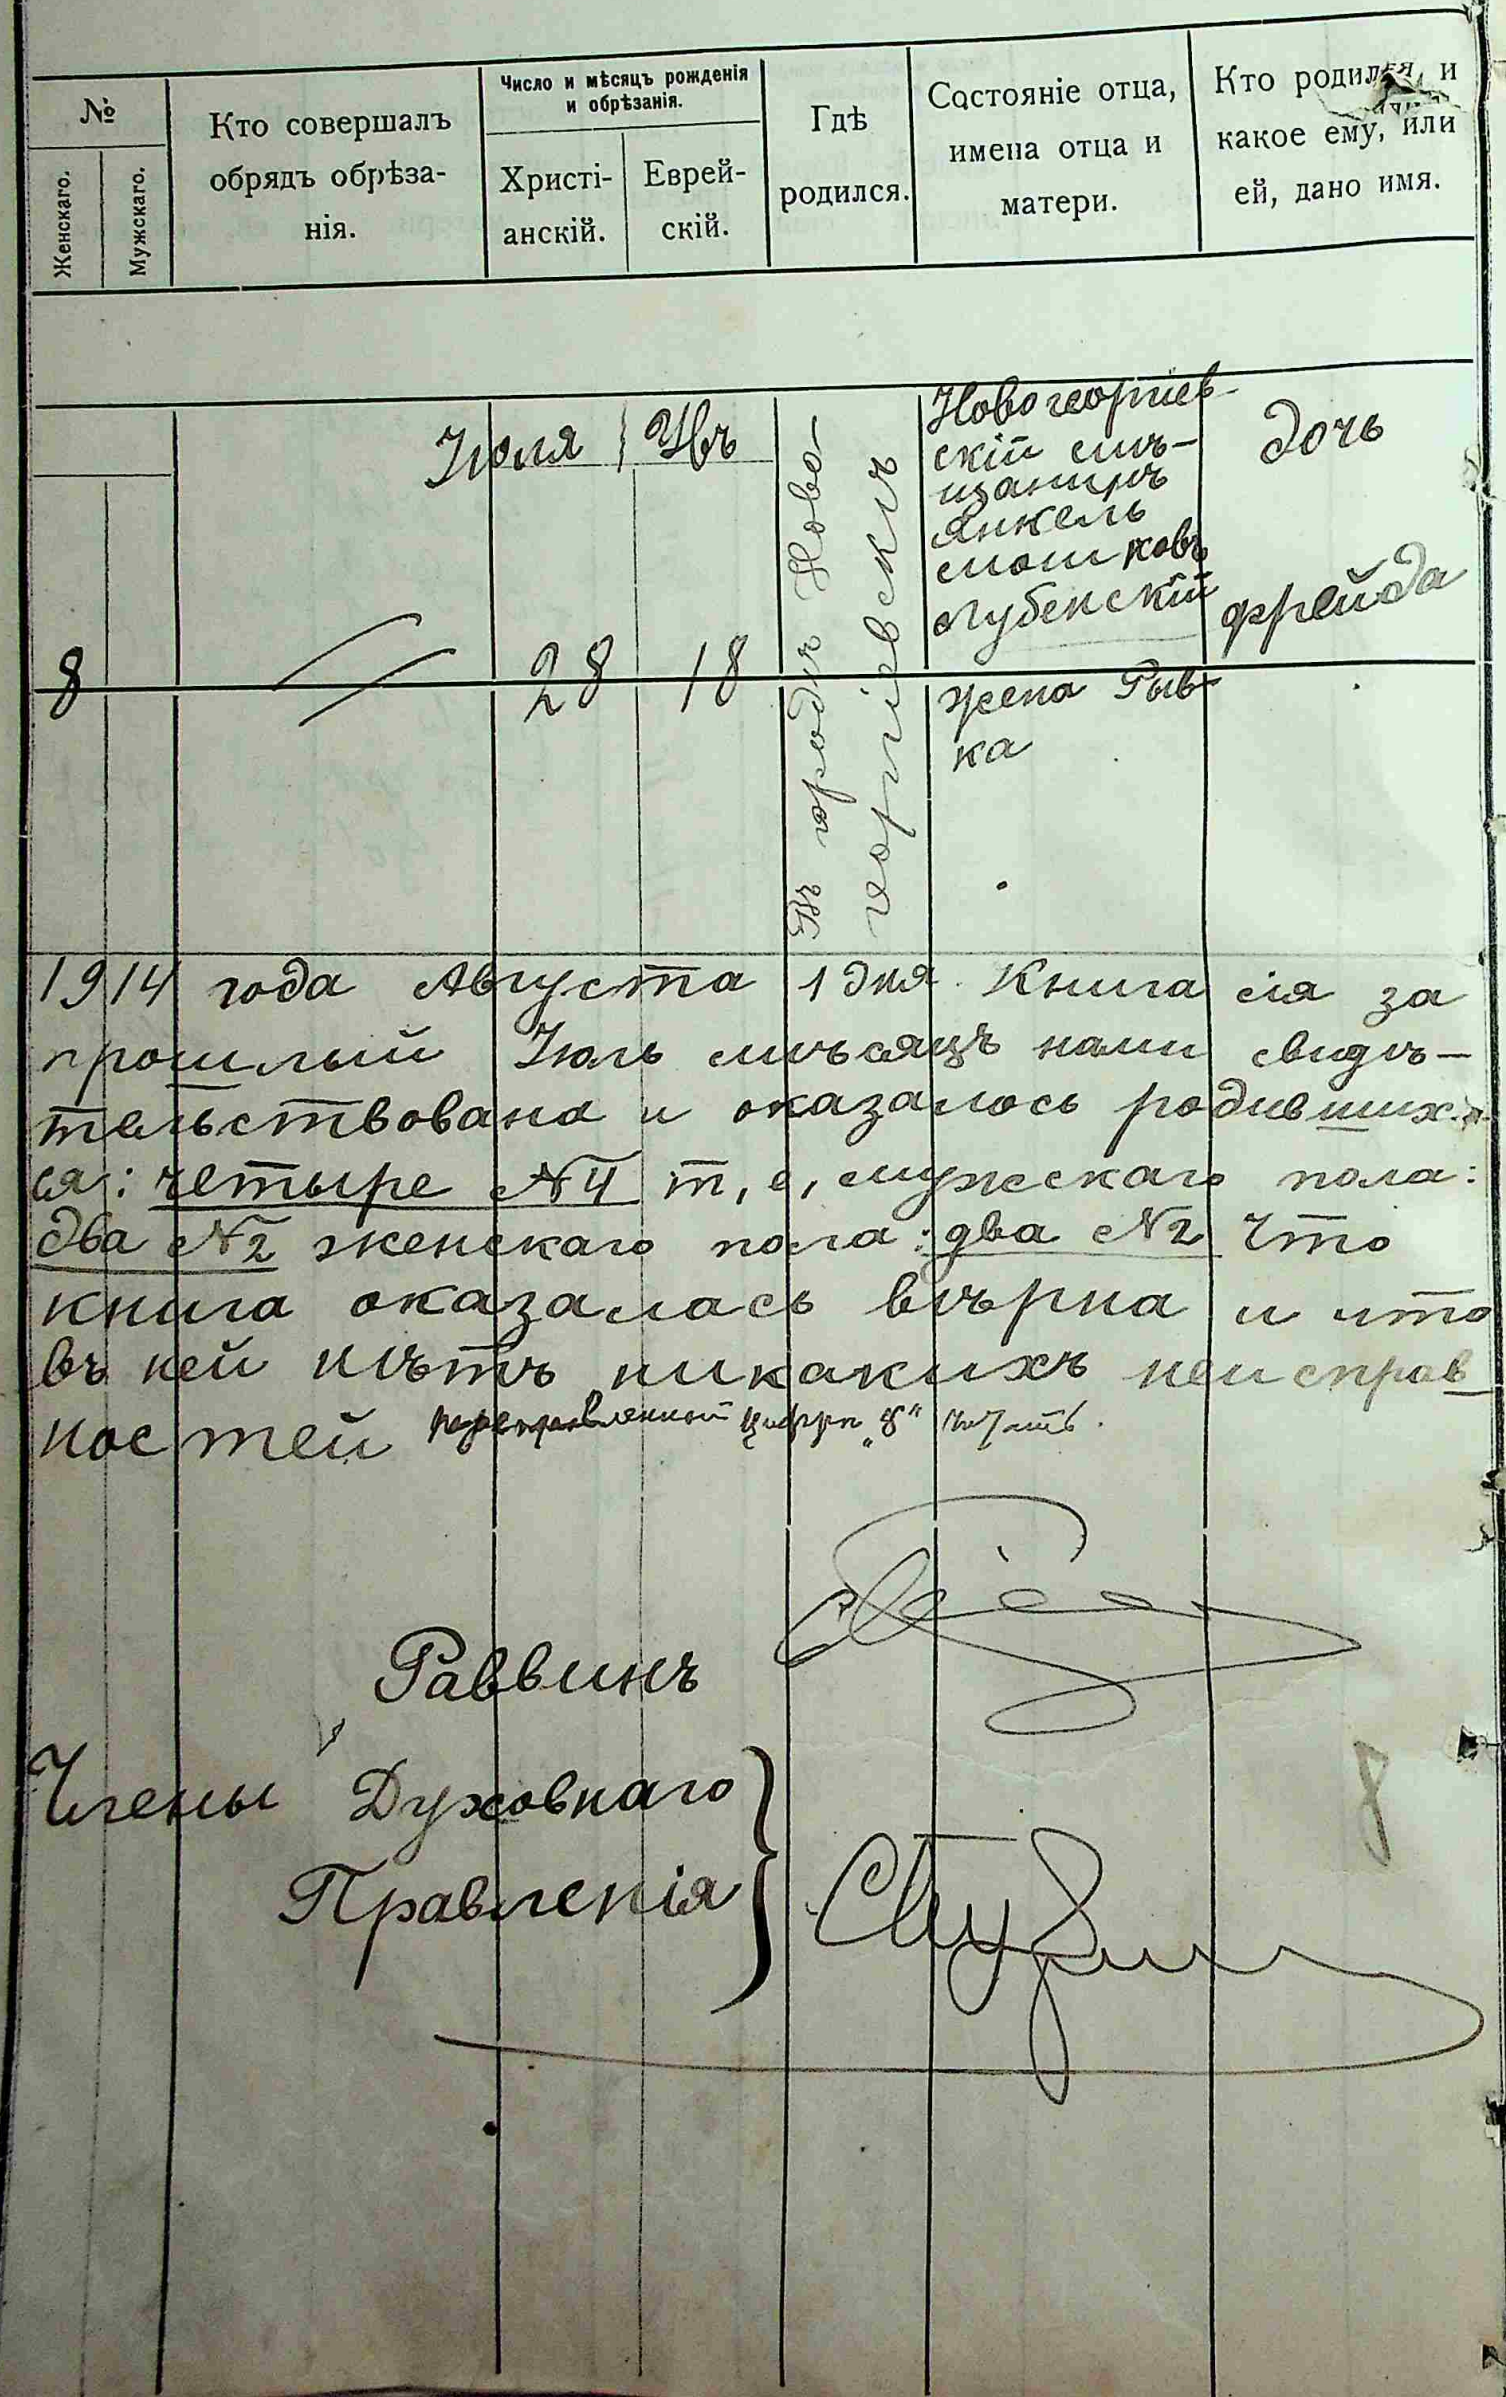 №
Женскаго.
Мужскаго.
Кто совершалъ
обрядъ обрѣза-
нія.
Число и мѣсяцъ рожденія
и обрѣзанія.
Христі-
анскій.
Еврей-
скій.
Гдѣ
родился.
Состояніе отца,
имена отца и
матери.
Кто родился, и
какое ему, или
ей, дано имя.
Іюля
8
28
18
Въ городѣ Ново-
георгіевскѣ
Новогеоргіев-
скій мѣ-
щанинъ
Янкель
Мошковъ
Лубенскій
жена Рыв-
ка
дочь
Фрейда
1914 года Августа 1 дня. Книга сія за
прошлый Іюль мѣсяцъ нами свидѣ-
тельствована и оказалось родивших-
ся: четыре №4 т, е, мужскаго пола:
два №2 женскаго пола: два №2 Что
книга оказалась вѣрна и что
въ ней нѣтъ никакихъ неисправ-
ностей цифры „8"
Раввинъ
Члены Духовнаго
Правленія
8